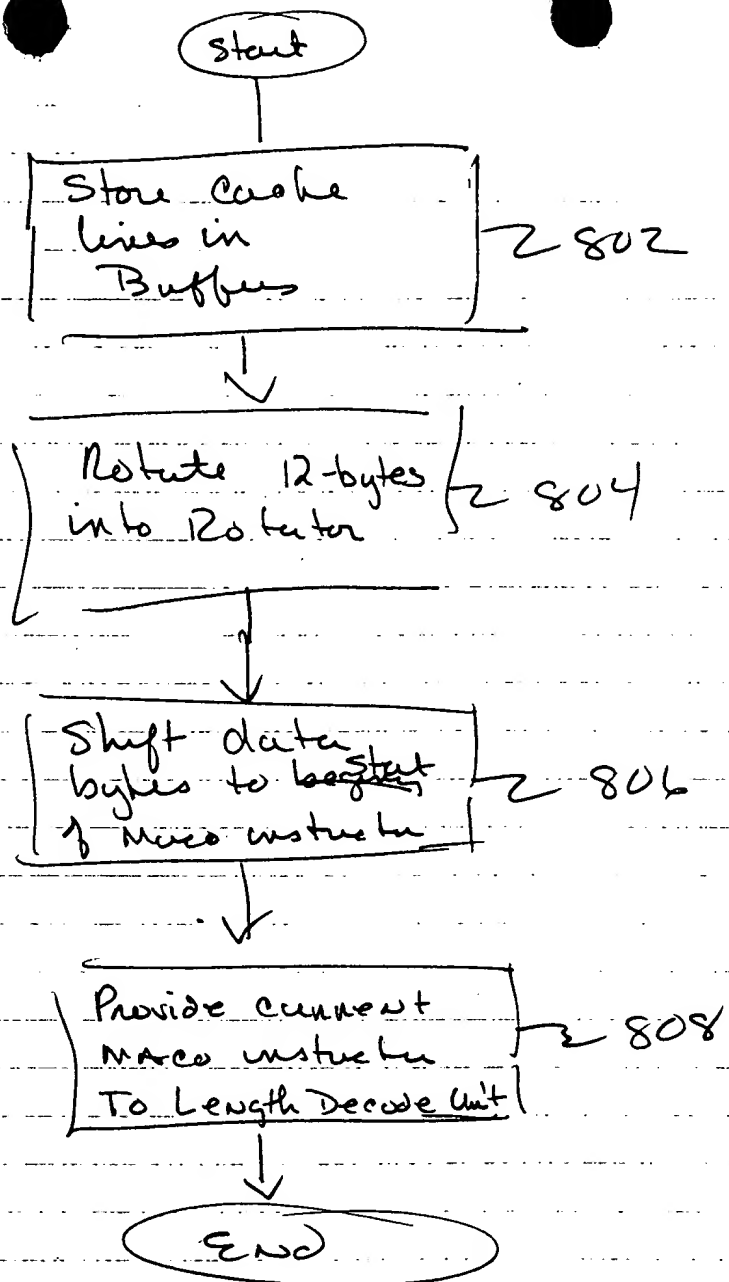 Start
Store Cache
lines in
Buffers
802
Rotate 12-bytes
into Rotator
804
Shift data
bytes to Start
of Maco instructu
806
Provide current
MAco instructu
To Length Decode Unit
808
END